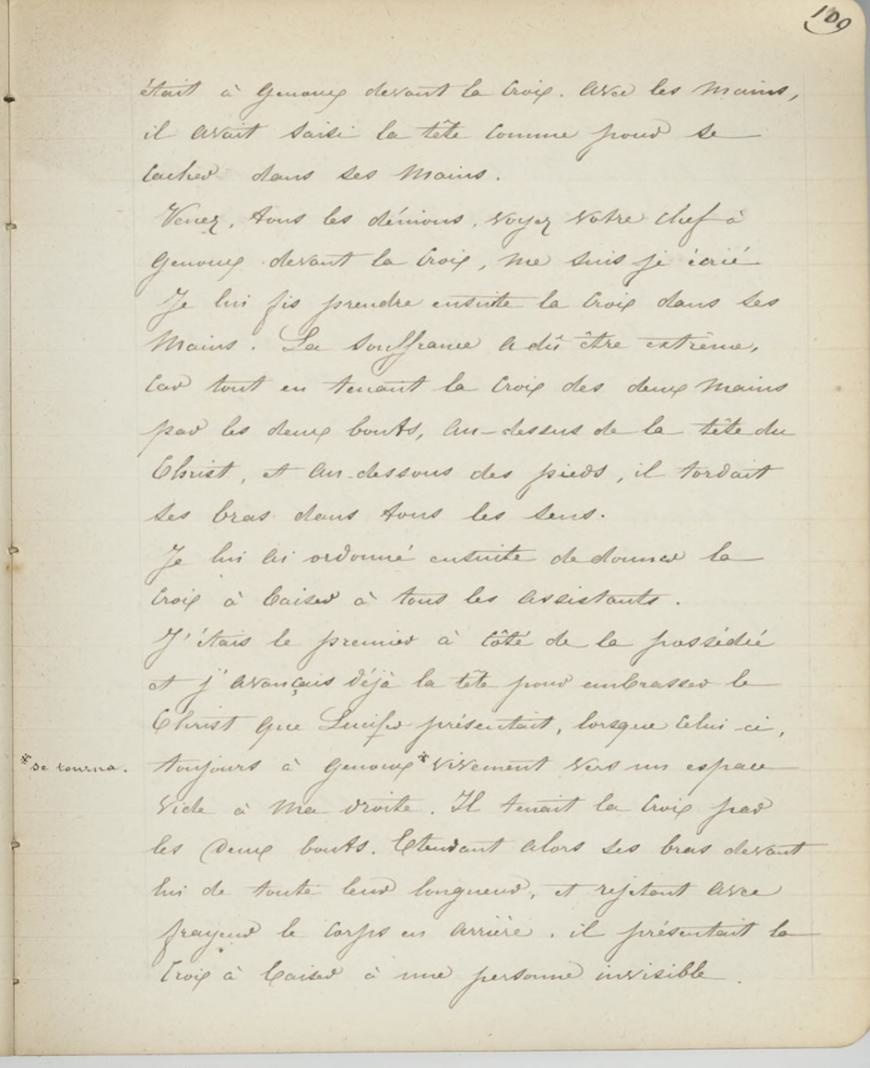 109
était à genoux devant la croix. Avec les mains,
il avait saisi la tête comme pour se
cacher dans ses mains.
Venez, tous les démons, voyez votre chef à
genoux devant la croix, me suis je écrié
Je lui fis prendre ensuite la croix dans ses
mains. La souffrance a dû être extrême,
car tout en tenant la croix des deux mains
par les deux bouts, au-dessus de la tête du
Christ, et au-dessous des pieds, il tordait
ses bras dans tous les sens.
Je lui ai ordonné ensuite de donner la
croix à baiser à tous les assistants.
J'étais le premier à côté de la possédée
et j'avançais déjà la tête pour embrasser le
Christ que Lucifer présentait, lorsque celui-ci,
toujours à genoux * vivement vers un espace
* se tourna.
vide à ma droite. Il tenait la croix par
les deux bouts. Etendant alors ses bras devant
lui de toute leur longueur, et rejetant avec
frayeur le corps en arrière. il présentait la
croix à baiser à une personne invisible.